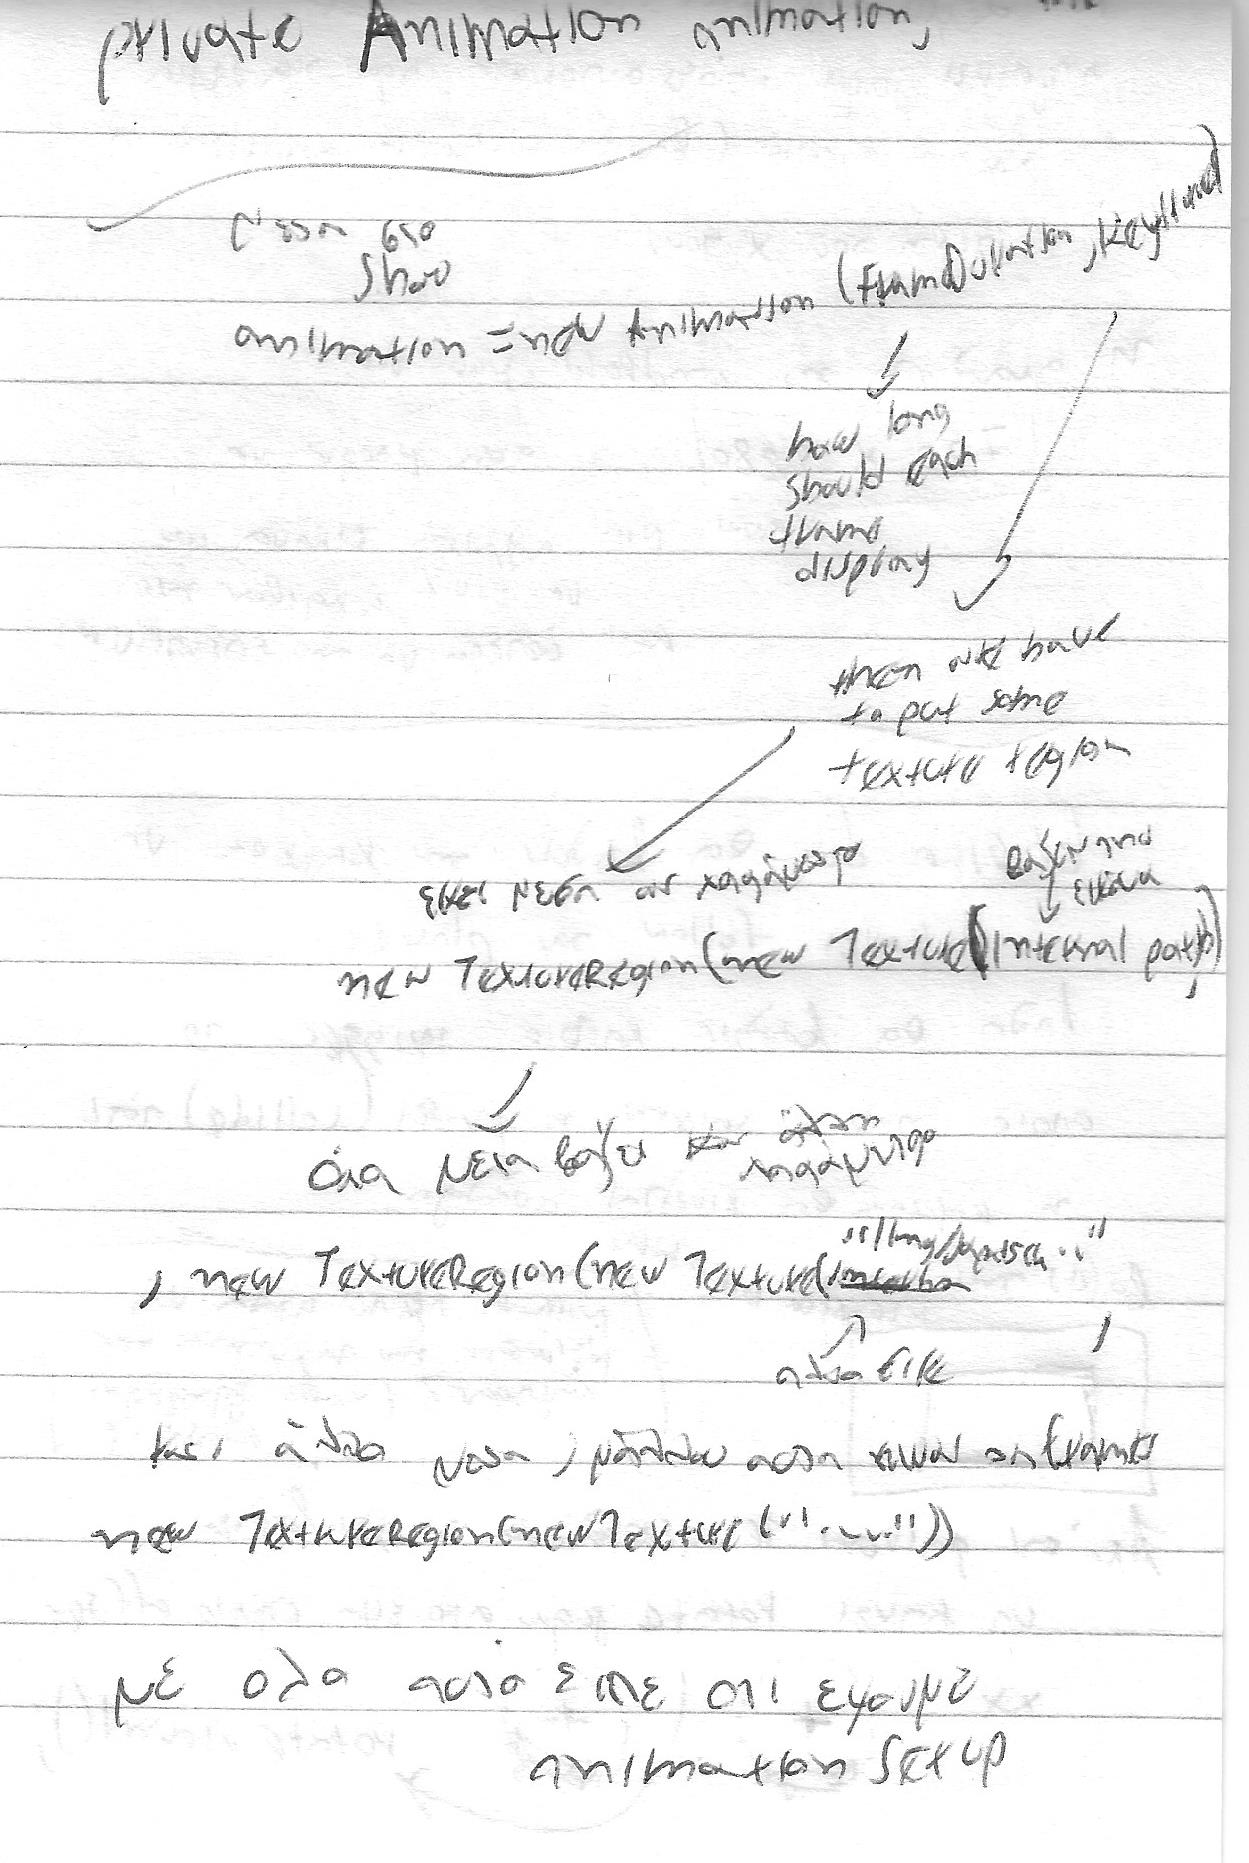 private Animation animation;
μεσα στο
show
animation = new Animation (FrameDuration, keyframe)
how long
should each
frame
display
then we have
to put some
texture region
εκει μεσα σαν παράμετρο
βαζεις την
εικόνα
new TextureRegion(new Texture(internal path)
,
όλα μετα βαζει και άλλη
παράμετρο
, new TextureRegion(new Texture(
,
αλλη εικ
και άλλα μεσα, μάλλον αυτα ειναι τα frames
new TextureRegion(new Texture ("....."))
με ολα αυτα ειπε οτι εχουμε
animation setup